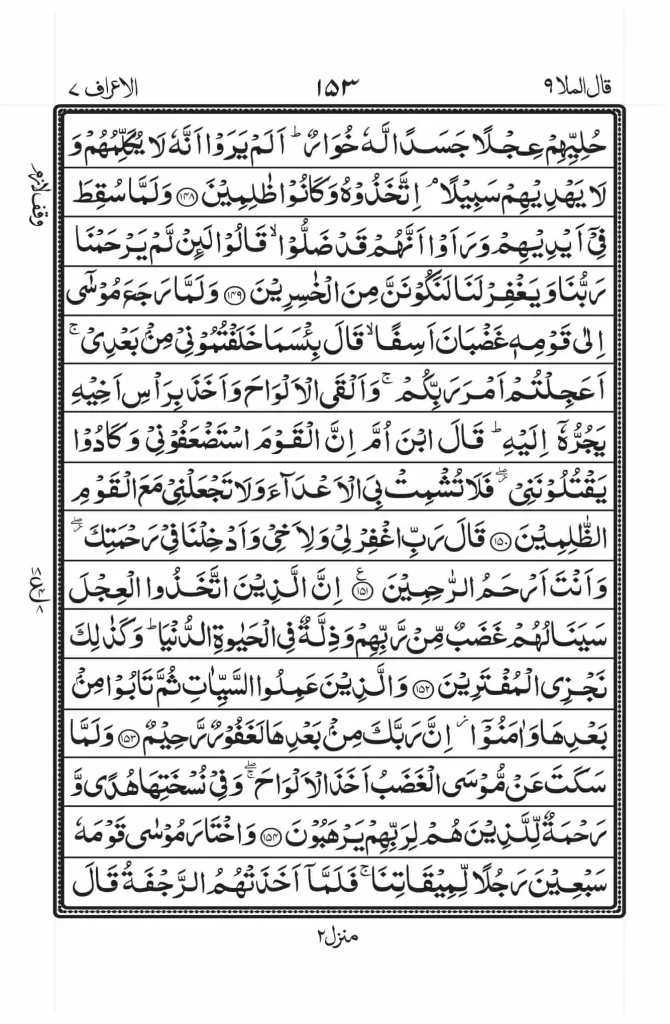 قال الملا ٩
١٥٣
الاعراف ٧
حُلِيِّهِمْ عِجْلًا جَسَدًا لَّهٗ خُوَارٌ ؕ اَلَمْ يَرَوْا اَنَّهٗ لَا يُكَلِّمُهُمْ وَ
لَا يَهْدِيْهِمْ سَبِيْلًا ۘ اِتَّخَذُوْهُ وَكَانُوْا ظٰلِمِيْنَ ﴿۱۴۸﴾ وَلَمَّا سُقِطَ
وقف لازم
فِيْۤ اَيْدِيْهِمْ وَرَاَوْا اَنَّهُمْ قَدْ ضَلُّوْا ۙ قَالُوْا لَىِٕنْ لَّمْ يَرْحَمْنَا
رَبُّنَا وَيَغْفِرْ لَنَا لَنَكُوْنَنَّ مِنَ الْخٰسِرِيْنَ ﴿۱۴۹﴾ وَلَمَّا رَجَعَ مُوْسٰۤى
اِلٰى قَوْمِهٖ غَضْبَانَ اَسِفًا ۙ قَالَ بِئْسَمَا خَلَفْتُمُوْنِيْ مِنْۢ بَعْدِيْ ۚ
اَعَجِلْتُمْ اَمْرَ رَبِّكُمْ ۚ وَاَلْقَى الْاَلْوَاحَ وَاَخَذَ بِرَاْسِ اَخِيْهِ
يَجُرُّهٗۤ اِلَيْهِ ؕ قَالَ ابْنَ اُمَّ اِنَّ الْقَوْمَ اسْتَضْعَفُوْنِيْ وَكَادُوْا
يَقْتُلُوْنَنِيْ ۖ فَلَا تُشْمِتْ بِيَ الْاَعْدَآءَ وَلَا تَجْعَلْنِيْ مَعَ الْقَوْمِ
الظّٰلِمِيْنَ ﴿۱۵۰﴾ قَالَ رَبِّ اغْفِرْ لِيْ وَلِاَخِيْ وَاَدْخِلْنَا فِيْ رَحْمَتِكَ ۖ
وَاَنْتَ اَرْحَمُ الرّٰحِمِيْنَ ﴿۱۵۱﴾ اِنَّ الَّذِيْنَ اتَّخَذُوا الْعِجْلَ
سَيَنَالُهُمْ غَضَبٌ مِّنْ رَّبِّهِمْ وَذِلَّةٌ فِي الْحَيٰوةِ الدُّنْيَا ؕ وَكَذٰلِكَ
نَجْزِي الْمُفْتَرِيْنَ ﴿۱۵۲﴾ وَالَّذِيْنَ عَمِلُوا السَّيِّاٰتِ ثُمَّ تَابُوْا مِنْۢ
بَعْدِهَا وَاٰمَنُوْۤا ؗ اِنَّ رَبَّكَ مِنْۢ بَعْدِهَا لَغَفُوْرٌ رَّحِيْمٌ ﴿۱۵۳﴾ وَلَمَّا
سَكَتَ عَنْ مُّوْسَى الْغَضَبُ اَخَذَ الْاَلْوَاحَ ۖۚ وَفِيْ نُسْخَتِهَا هُدًى وَّ
رَحْمَةٌ لِّلَّذِيْنَ هُمْ لِرَبِّهِمْ يَرْهَبُوْنَ ﴿۱۵۴﴾ وَاخْتَارَ مُوْسٰى قَوْمَهٗ
سَبْعِيْنَ رَجُلًا لِّمِيْقَاتِنَا ۚ فَلَمَّاۤ اَخَذَتْهُمُ الرَّجْفَةُ قَالَ
منزل ٢